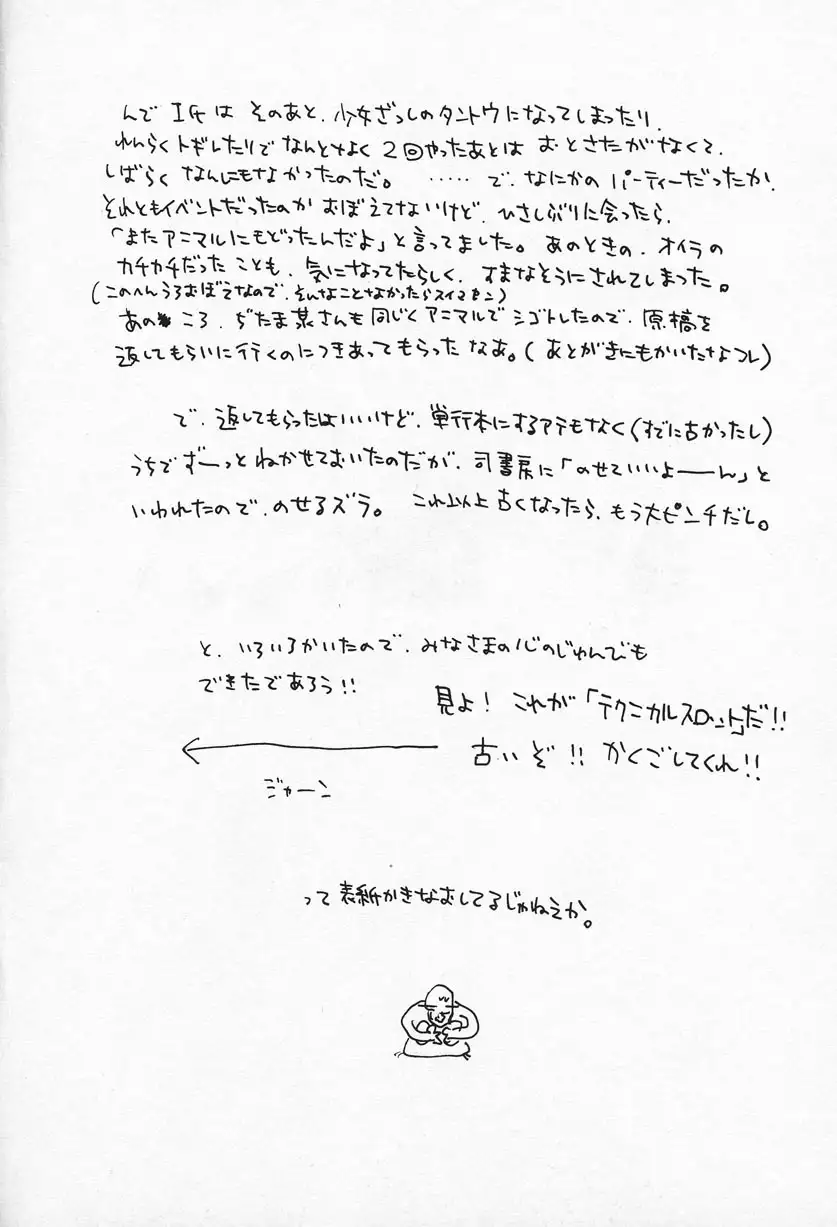 んで I氏は そのあと、少女ざっしのタントウになってしまったり、
れんらくトギレたりで なんとなく 2回やったあとは おとさたがなくて、
しばらく なんにもなかったのだ。 ‥‥‥ で、なにかの パーティーだったか、
それともイベントだったのか おぼえてないけど、ひさしぶりに会ったら、
「またアニマルにもどったんだよ」と言ってました。 あのときの、オイラの
カチカチだった ことも、気になってたらしく、すまなそうにされてしまった。
(このへんうろおぼえなので、そんなことなかったらスイマセン)
あの ころ、ぢたま某さんも同じく アニマルで シゴトしたので、原稿を
返してもらいに行くのにつきあってもらった なあ。(あとがきにもかいたなコレ)
で、返してもらったはいいけど、単行本にするアテもなく(すでに古かったし)
うちで ずーっと ねかせておいたのだが、司書房に「のせていいよーーん」と
いわれたので、のせるズラ。 これ以上 古くなったら、もう大ピンチだし。
と、いろいろかいたので、みなさまの心のじゅんびも
できたであろう!!
見よ! これが「テクニカルスロット」だ!!
古いぞ!! かくごしてくれ!!
ジャーン
って 表紙かきなおしてるじゃねえか。